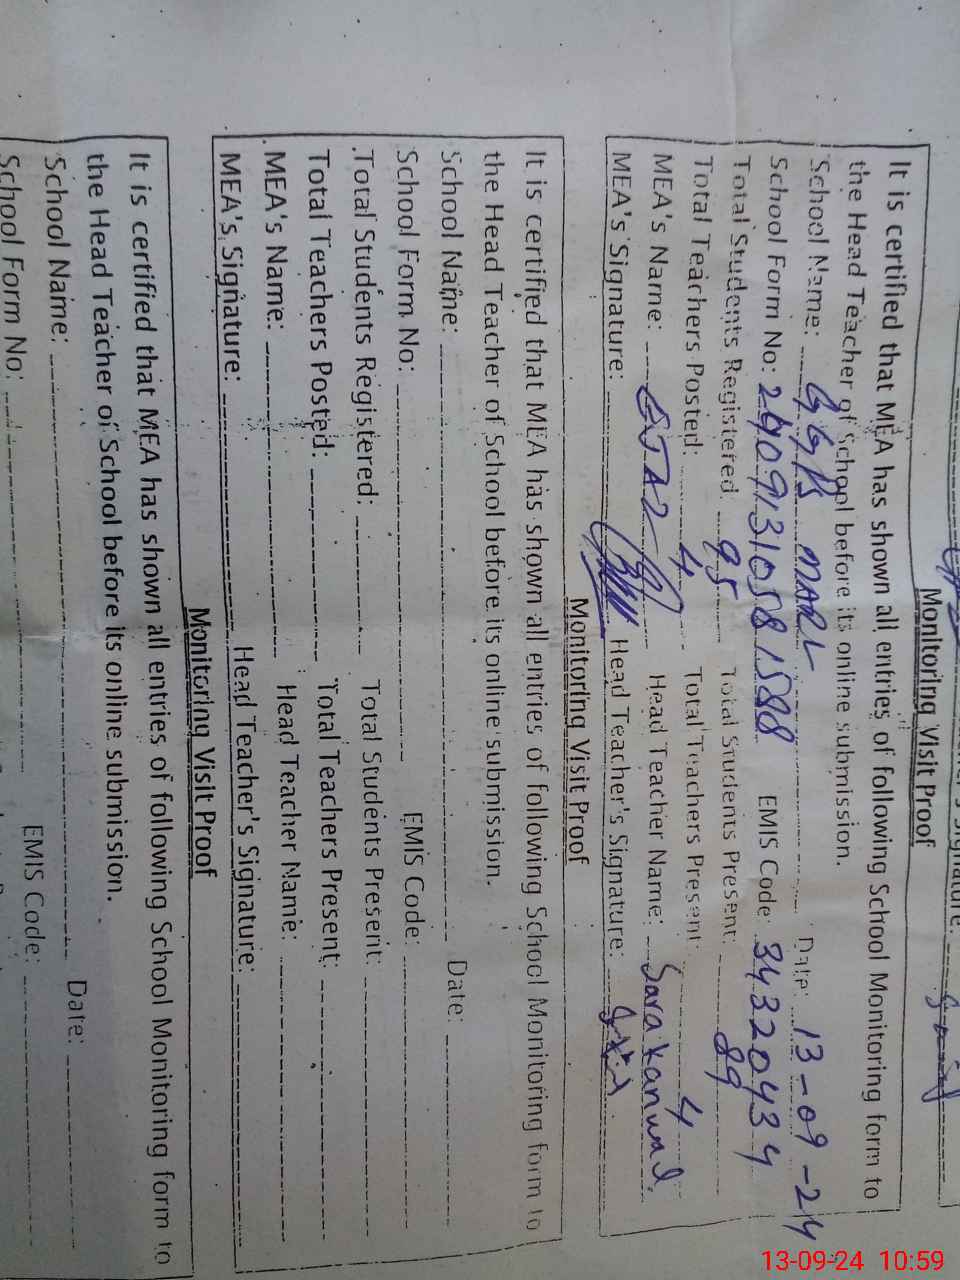 Signature:
Monitoring Visit Proof
It is certified that MEA has shown all entries of following School Monitoring form to
the Head Teacher of School before its online submission.
School Name: GGPS MARL Date: 13-09-24
School Form No: 24091310581588 EMIS Code: 34320434
Total Students Registered 95 Total Students Present: 89
Total Teachers Posted: 4 Total Teachers Present: 4
MEA's Name: Head Teacher Name: Sara Kanwal.
MEA's Signature: Head Teacher's Signature:
Monitoring Visit Proof
It is certified that MEA has shown all entries of following School Monitoring form to
the Head Teacher of School before its online submission.
School Name: Date:
School Form No: EMIS Code:
Total Students Registered: Total Students Present:
Total Teachers Posted: Total Teachers Present:
MEA's Name: Head Teacher Name:
MEA's Signature: Head Teacher's Signature:
Monitoring Visit Proof
It is certified that MEA has shown all entries of following School Monitoring form to
the Head Teacher of School before its online submission.
School Name: Date:
School Form No: EMIS Code:
13-09-24 10:59